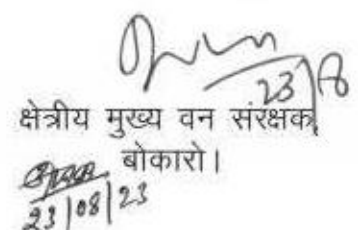 23/8
क्षेत्रीय मुख्य वन संरक्षक,
बोकारो।
23/08/23